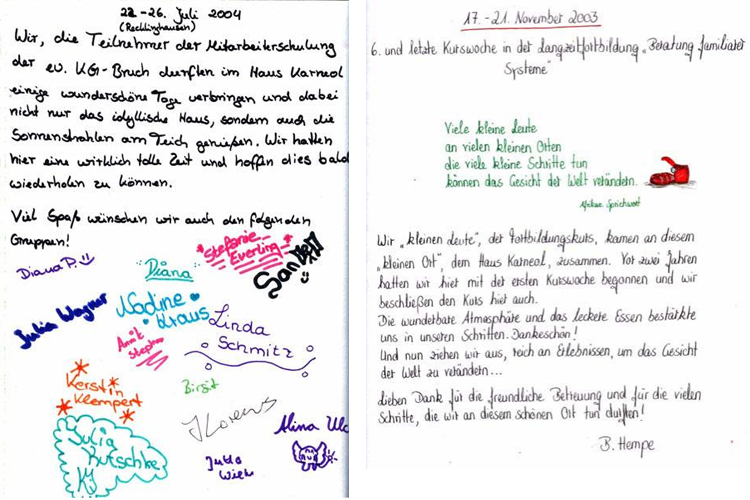 22.-26. Juli 2004
(Recklinghausen)
Wir, die Teilnehmer der Mitarbeiterschulung
der ev. KG-Bruch durften im Haus Karneol
einige wunderschöne Tage verbringen und dabei
nicht nur das idyllische Haus, sondern auch die
Sonnenstrahlen am Teich genießen. Wir hatten
hier eine wirklich tolle Zeit und hoffen dies bald
wiederholen zu können.
Viel Spaß wünschen wir auch den folgenden
Gruppen!
Diana P.
Diana
Stefanie
Everling
Julia Wagner
Nadine
Kraus
Linda
Schmitz
Kerstin
Klempert
Birgit
Julia
Kutschke
KJ
Alina
Jutta
17.-21. November 2003
6. und letzte Kurswoche in der Langzeitfortbildung „Beratung familiärer
Systeme"
Viele kleine Leute
an vielen kleinen Orten
die viele kleine Schritte tun
können das Gesicht der Welt verändern.
Afrikan. Sprichwort
Wir „kleinen Leute", der Fortbildungskurs, kamen an diesem
„kleinen Ort", dem Haus Karneol, zusammen. Vor zwei Jahren
hatten wir hier mit der ersten Kurswoche begonnen und wir
beschließen den Kurs hier auch.
Die wunderbare Atmosphäre und das leckere Essen bestärkte
uns in unseren Schritten. Dankeschön!
Und nun ziehen wir aus, reich an Erlebnissen, um das Gesicht
der Welt zu verändern...
Lieben Dank für die freundliche Betreuung und für die vielen
Schritte, die wir an diesem schönen Ort tun durften!
B. Hempe